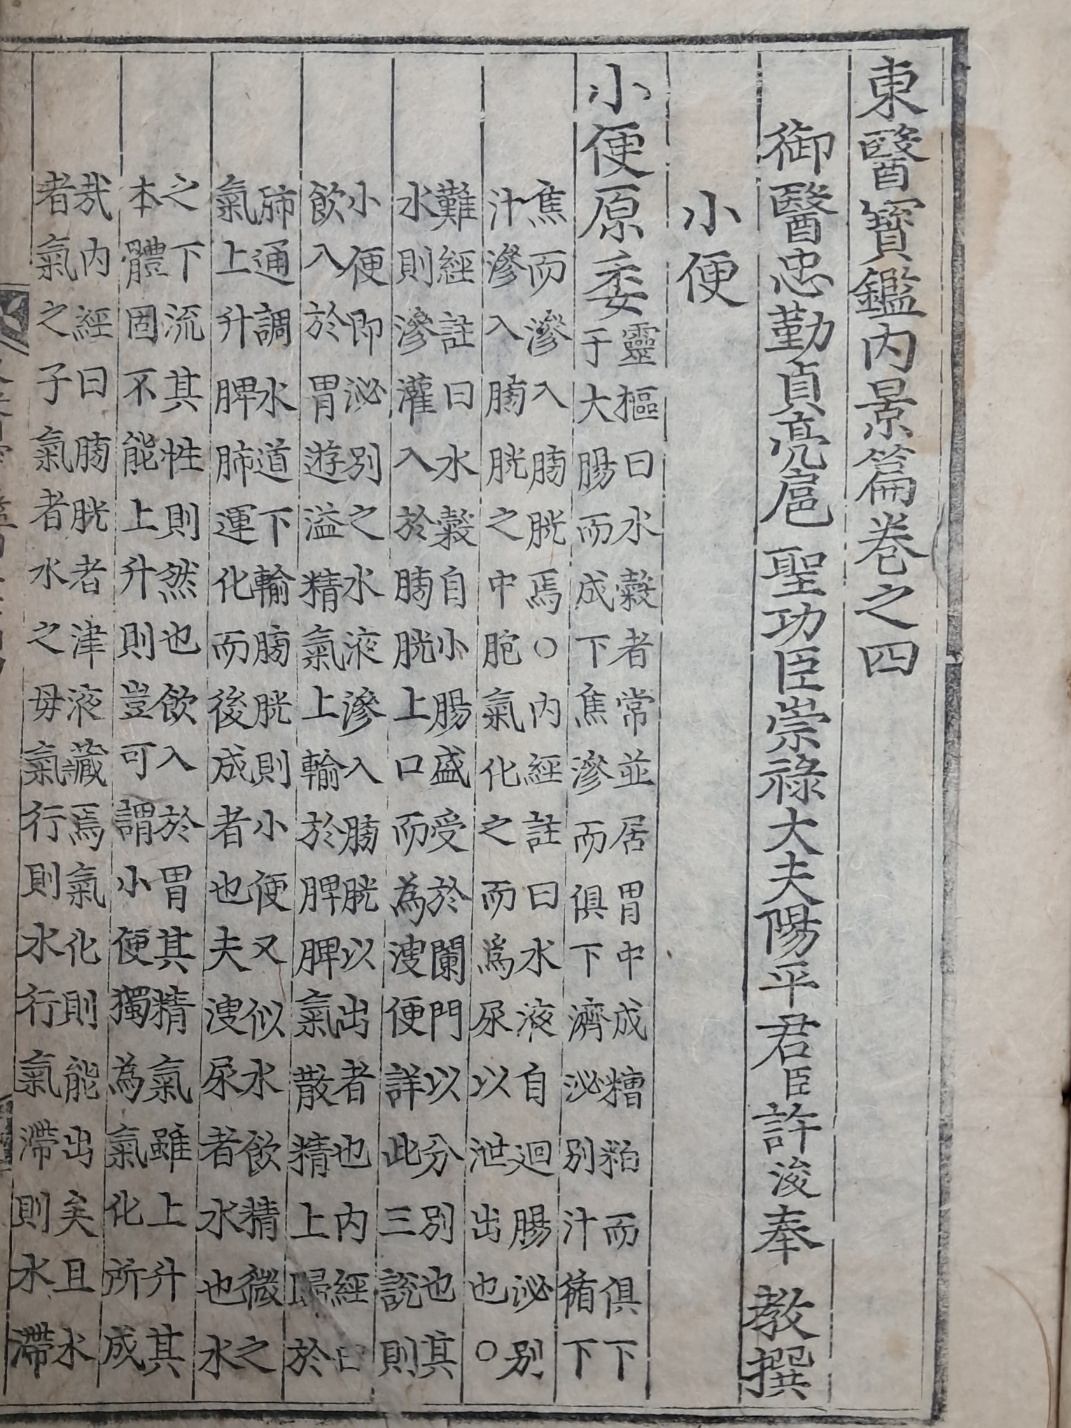 東醫寶鑑內景篇卷之四
御醫忠勤貞亮扈聖功臣崇祿大夫陽平君臣許浚奉教撰
小便
小便原委
靈樞曰水穀者常並居胃中成糟粕而俱下
于大腸而成下焦滲而俱下濟泌別汁循下
焦而滲入膀胱焉○內經註曰水液自迴腸泌別
汁滲入膀胱之中胞氣化之而爲尿以泄出也○
難經註曰水穀自小腸盛受於闌門以分別也其
水則滲灌入於膀胱上口而為溲便詳此三說則
小便即泌別之水液滲入膀胱以出者也內經曰
飮入於胃遊溢精氣上輸於脾脾氣散精上歸於
肺通調水道下輸膀胱則小便又似水飮精微之
氣上升脾肺運化而後成者也夫溲尿者水也水
之下流其性則然也飮入於胃其精氣雖上升其
本體固不能上升則豈可謂小便獨為氣化所成
哉內經曰膀胱者津液藏焉氣化則能出矣且水
者氣之子氣者水之母氣行則水行氣滯則水滯